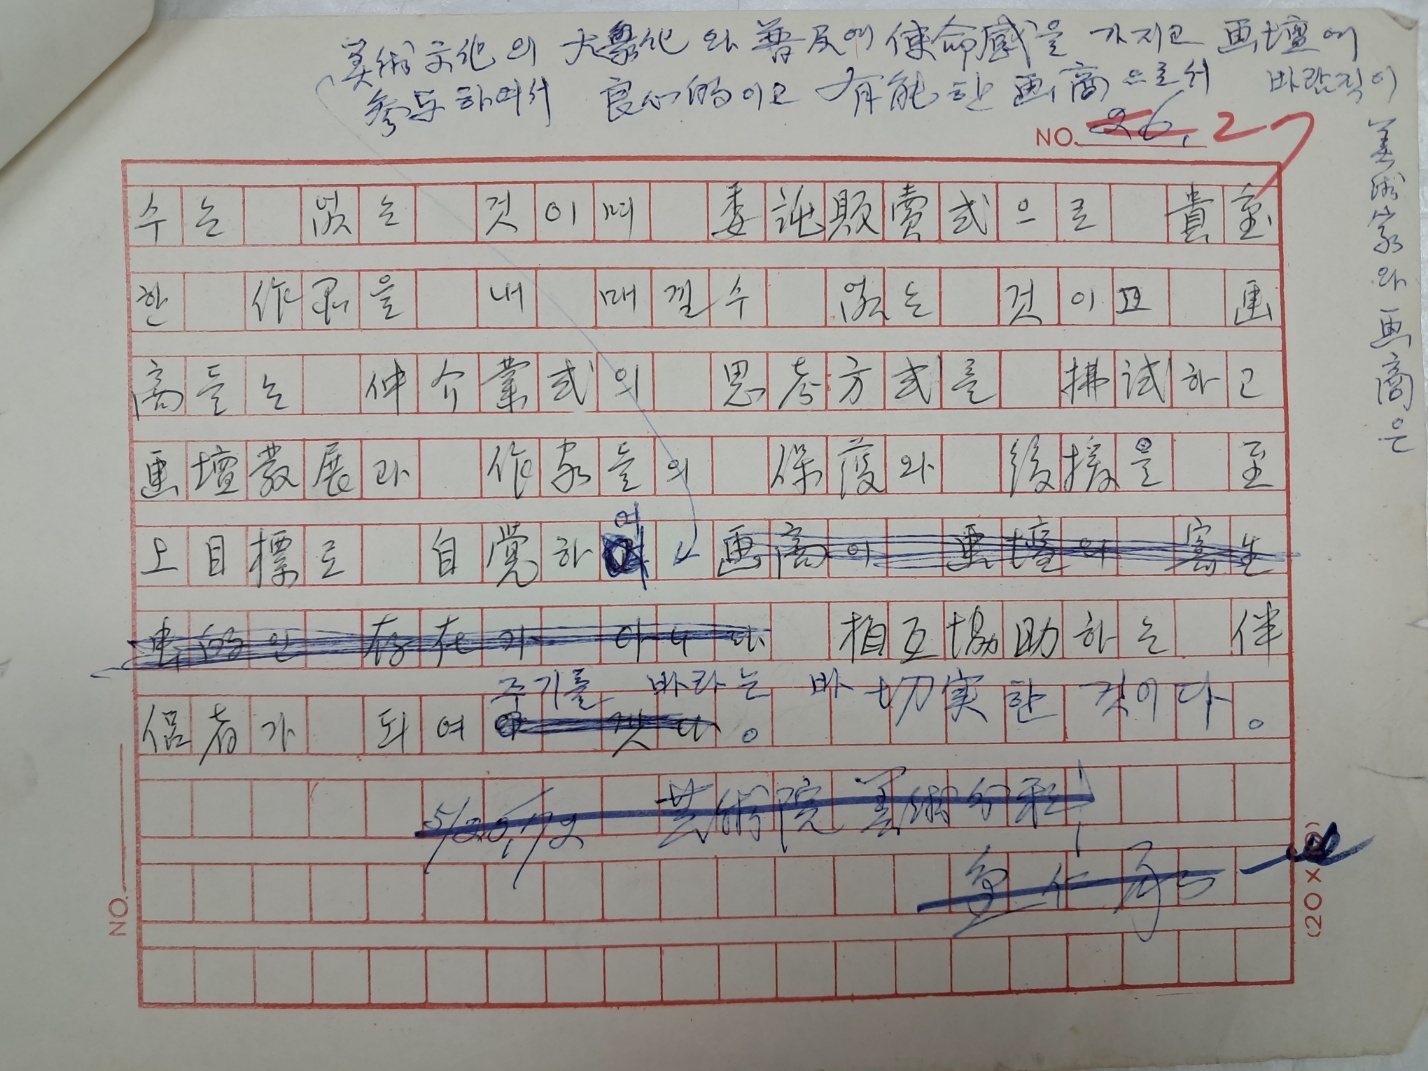 美術文化의 大衆化와 普及에 使命感을 가지고 画壇에
参与하여서 良心的이고 有能한 画商으로서 바람직이
美術家와 画商은
NO. 26, 27
수는 없는 것이며 委託販賣式으로 貴重
한 作品을 내매낄수 없는 것이고 画
商들는 仲介業式의 思考方式를 拂拭하고
画壇發展과 作家들의 保護와 後援을 至
上目標로 自覺하여 画商이 画壇의 寄生
虫的인 存在가 아니다 相互協助하는 伴
주기를 바라는 바 切実한 것이다.
侶者가 되여 것다。
5/20, 72 芸術院 美術分科
NO.
(20×10)